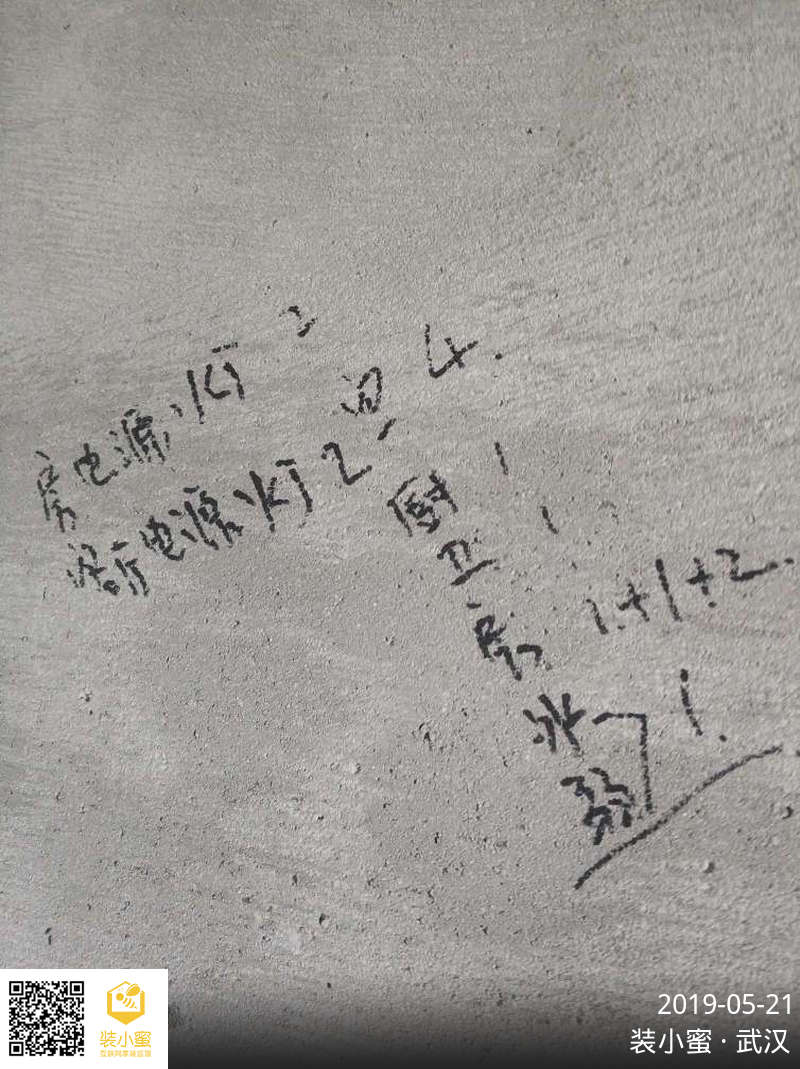 房电源灯 2
客厅电源灯 2
回 4.
厨 1
卫 1
房 1+1+2.
冰 1.
弱
装小蜜
2019-05-21
装小蜜·武汉